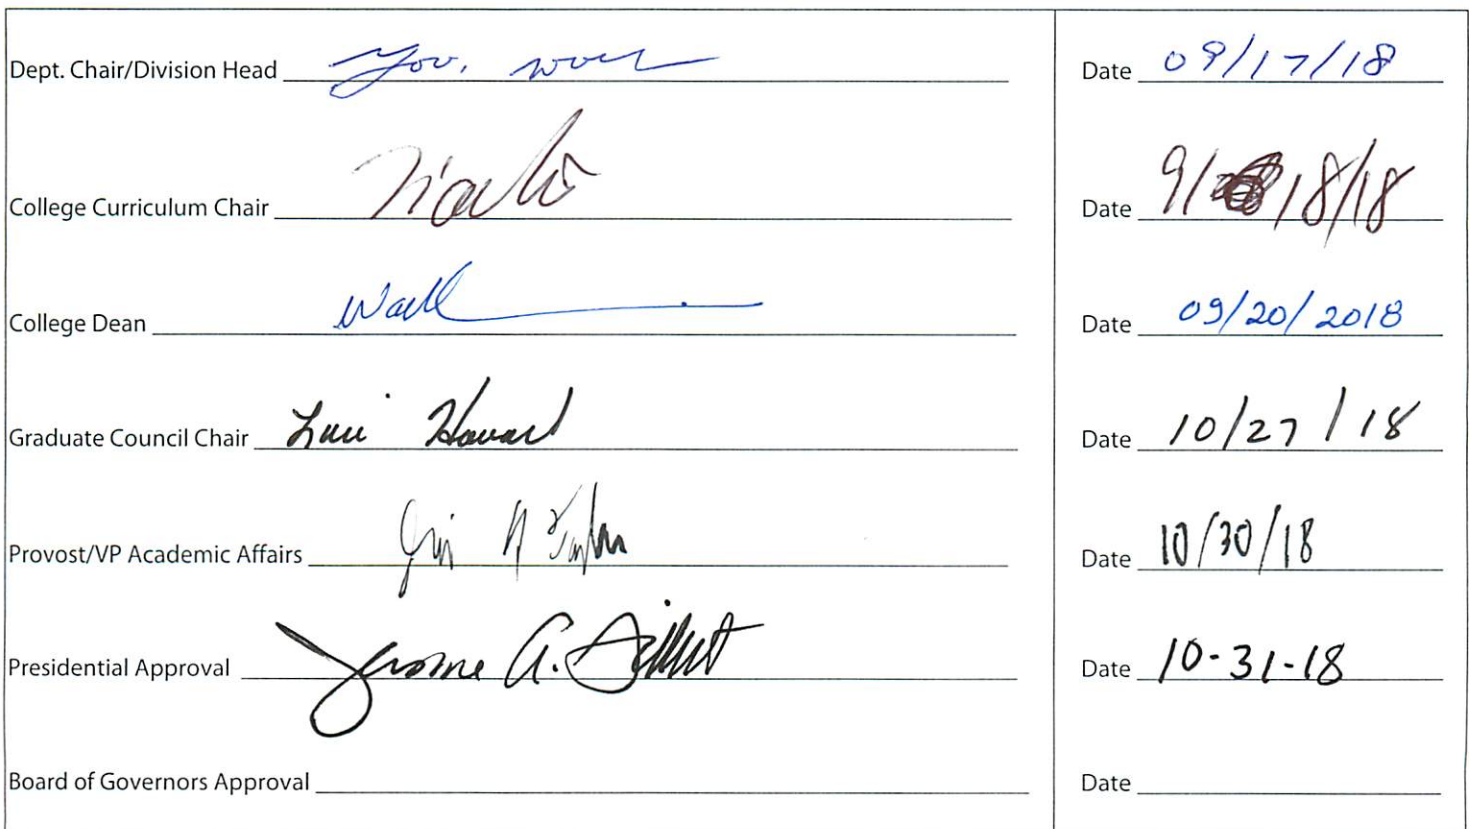 Dept. Chair/Division Head Date 09/17/18
College Curriculum Chair Date 9/18/18
College Dean Date 09/20/2018
Graduate Council Chair Lori Howard Date 10/27/18
Provost/VP Academic Affairs Date 10/30/18
Presidential Approval Jerome A. Gilbert Date 10-31-18
Board of Governors Approval Date